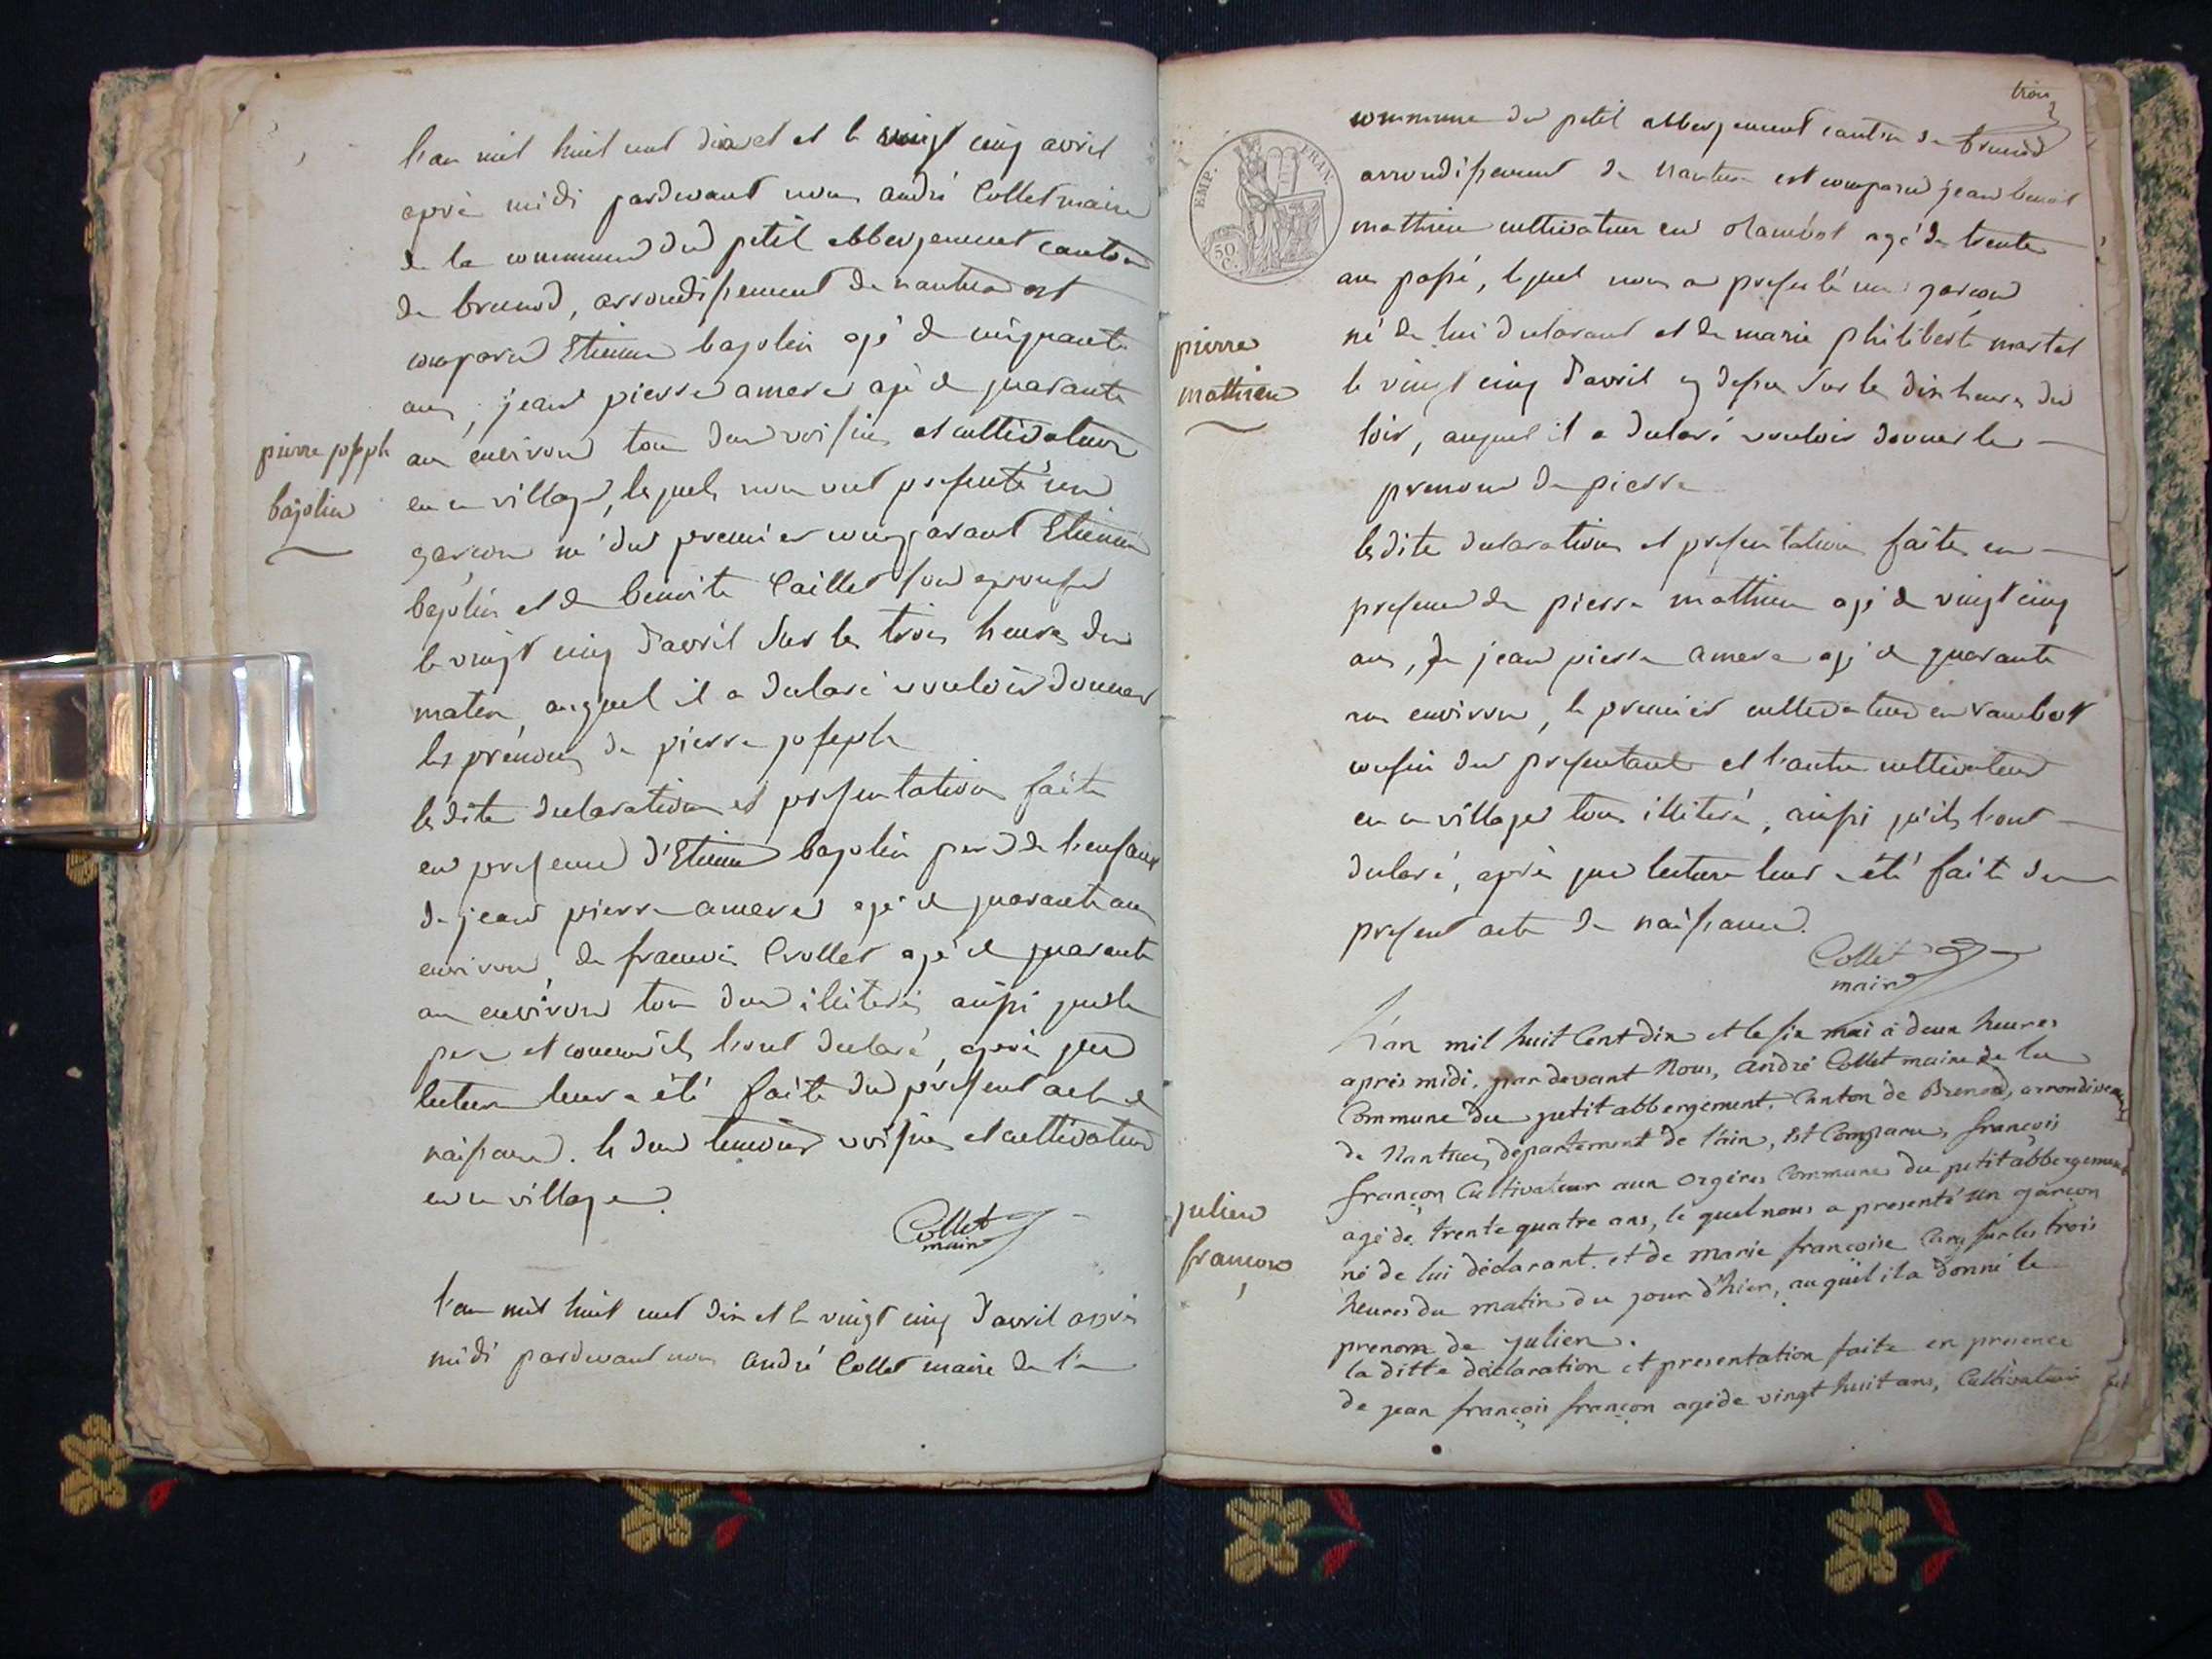 l'an mil huit cent dix et le vingt cinq avril
après midi pardevant nous andré Collet maire
de la commune du petit abbergement canton
de brenod, arrondissement de nantua est
comparu Etienne bajolin agé de cinquante
ans, jean pierre amere agé de quarante
pierre joseph
bajolin
ans environ tous deux voisins et cultivateur
en ce village, lesquels nous ont presenté un
garcon né du premier comparant Etienne
bajolin et de benoite Caillet son epouse
le vingt cinq d'avril sur les trois heures du
matin, auquel il a declaré vouloir donner
les prénoms de pierre joseph
lesdite declaration et presentation faite
en presence d'Etienne bajolin pere de l'enfant
de jean pierre amere agé de quarante ans
environ, de francois Crollet agé de quarante
ans environ tous deux illiteré aussi que le
pere et comme ils l'ont declaré, après que
lecture leur a été faite du present acte de
naissance. les deux temoins voisins et cultivateur
en ce village
Collet
maire
l'an mil huit cent dix et le vingt cinq d'avril après
midi pardevant nous andré Collet maire de la
trois
commune du petit abbergement canton de brenod
arrondissement de nantua est comparu jean benoit
EMP. FRAN.
50
C.
mathieu cultivateur en agé de trente
ans passé, lequel nous a presenté un garcon
pierre
mathieu
né de lui declarant et de marie philiberte martel
le vingt cinq d'avril sur les dix heures du
soir, auquel il a declaré vouloir donner le
prenom de pierre
lesdite declaration et presentation faite en
presence de pierre mathieu agé de vingt cinq
ans, de jean pierre amere agé de quarante
ans environ, le premier cultivateur en rambot
cousin du presentant et l'autre cultivateur
en ce village tous illiteré, ainsi qu'ils l'ont
declaré, après que lecture leur a été faite du
present acte de naissance.
Collet
maire
L'an mil huit Cent dix et le six mai à deux heures
après midi, par devant Nous, andré Collet maire de la
Commune du petit abbergement, Canton de Brenod, arrondissement
de Nantua, departement de l'ain, est Comparu, françois
julien
françon
françon Cultivateur aux orgères Commune du petit abbergement
agé de trente quatre ans, le quel nous a presenté un garçon
né de lui déclarant. et de marie françoise sur les trois
heures du matin du jour d'hier, auquel il a donné le
prenom de julien.
la ditte déclaration et presentation faite en presence
de jean françois françon agé de vingt huit ans, Cultivateur